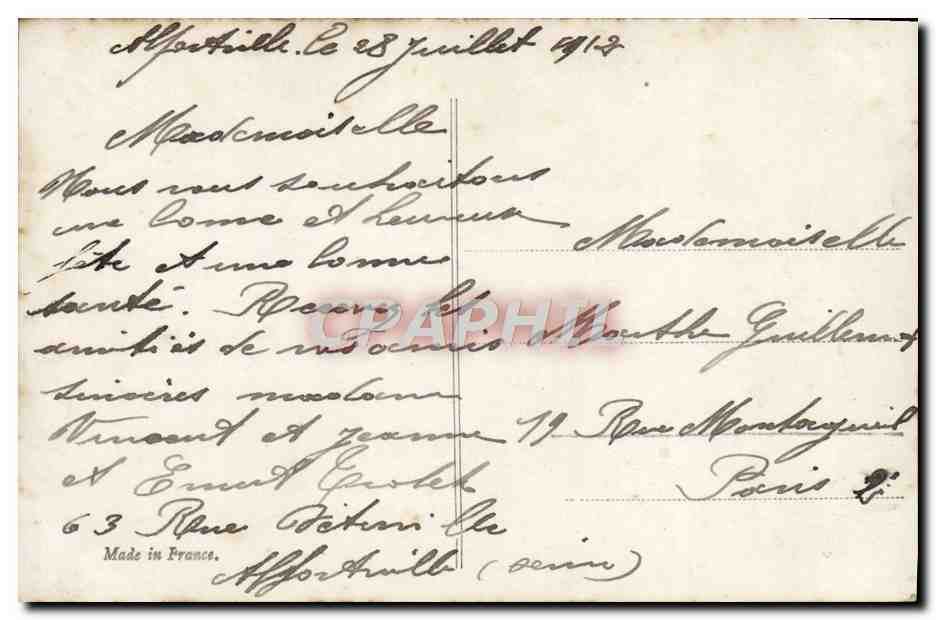 Alfortville. le 28 Juillet 1912
Mademoiselle
Nous vous souhaitons
une bonne et heureuse
fête et une bonne
santé. Recevez les
amitiés de vos amis
sincères madame
Vincent et Jeanne
et Ernest Trolet
63 Rue
Alfortville (seine)
Made in France.
Mademoiselle
Marthe Guillemot
19 Rue Montorgueil
Paris 2e
CPAPHIL